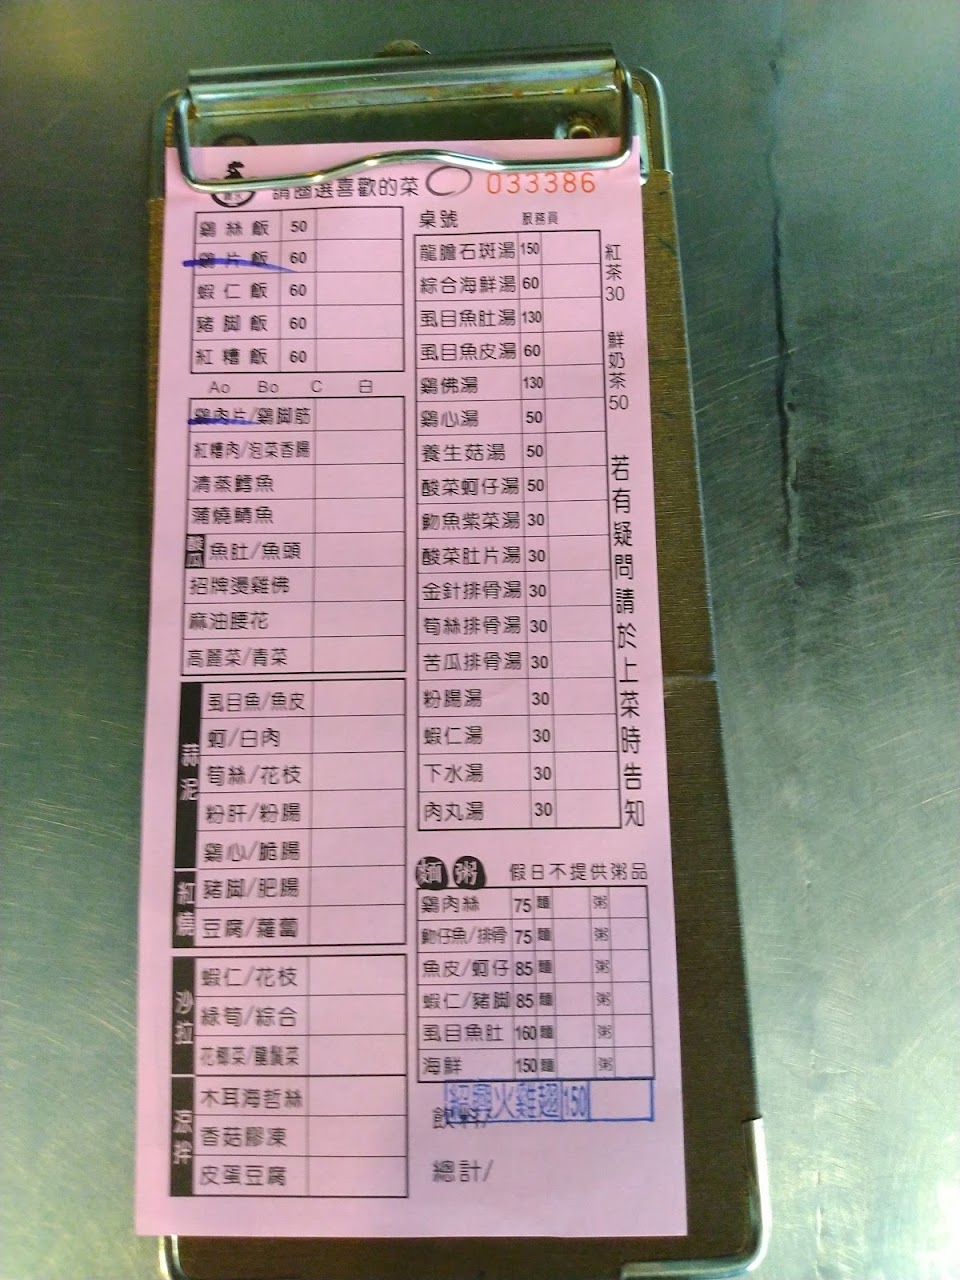 請圈選喜歡的菜 033386
雞絲飯 50
雞片飯 60
蝦仁飯 60
豬脚飯 60
紅糟飯 60
Ao Bo C 白
雞肉片/雞脚筋
紅糟肉/泡菜香腸
清蒸鱈魚
蒲燒鯖魚
魚肚/魚頭
招牌燙雞佛
麻油腰花
高麗菜/青菜
蒜泥
虱目魚/魚皮
蚵/白肉
筍絲/花枝
粉肝/粉腸
雞心/脆腸
紅燒
豬脚/肥腸
豆腐/蘿蔔
沙拉
蝦仁/花枝
綠筍/綜合
花椰菜/龍鬚菜
涼拌
木耳海哲絲
香菇膠凍
皮蛋豆腐
桌號 服務員
龍膽石斑湯 150
綜合海鮮湯 60
虱目魚肚湯 130
虱目魚皮湯 60
雞佛湯 130
雞心湯 50
養生菇湯 50
酸菜蚵仔湯 50
魩魚紫菜湯 30
酸菜肚片湯 30
金針排骨湯 30
筍絲排骨湯 30
苦瓜排骨湯 30
粉腸湯 30
蝦仁湯 30
下水湯 30
肉丸湯 30
紅茶30 鮮奶茶50
若有疑問請於上菜時告知
麵 粥 假日不提供粥品
雞肉絲 75 麵 粥
魩仔魚/排骨 75 麵 粥
魚皮/蚵仔 85 麵 粥
蝦仁/豬脚 85 麵 粥
虱目魚肚 160 麵 粥
海鮮 150 麵 粥
紹興火雞翅 150
飲料/
總計/